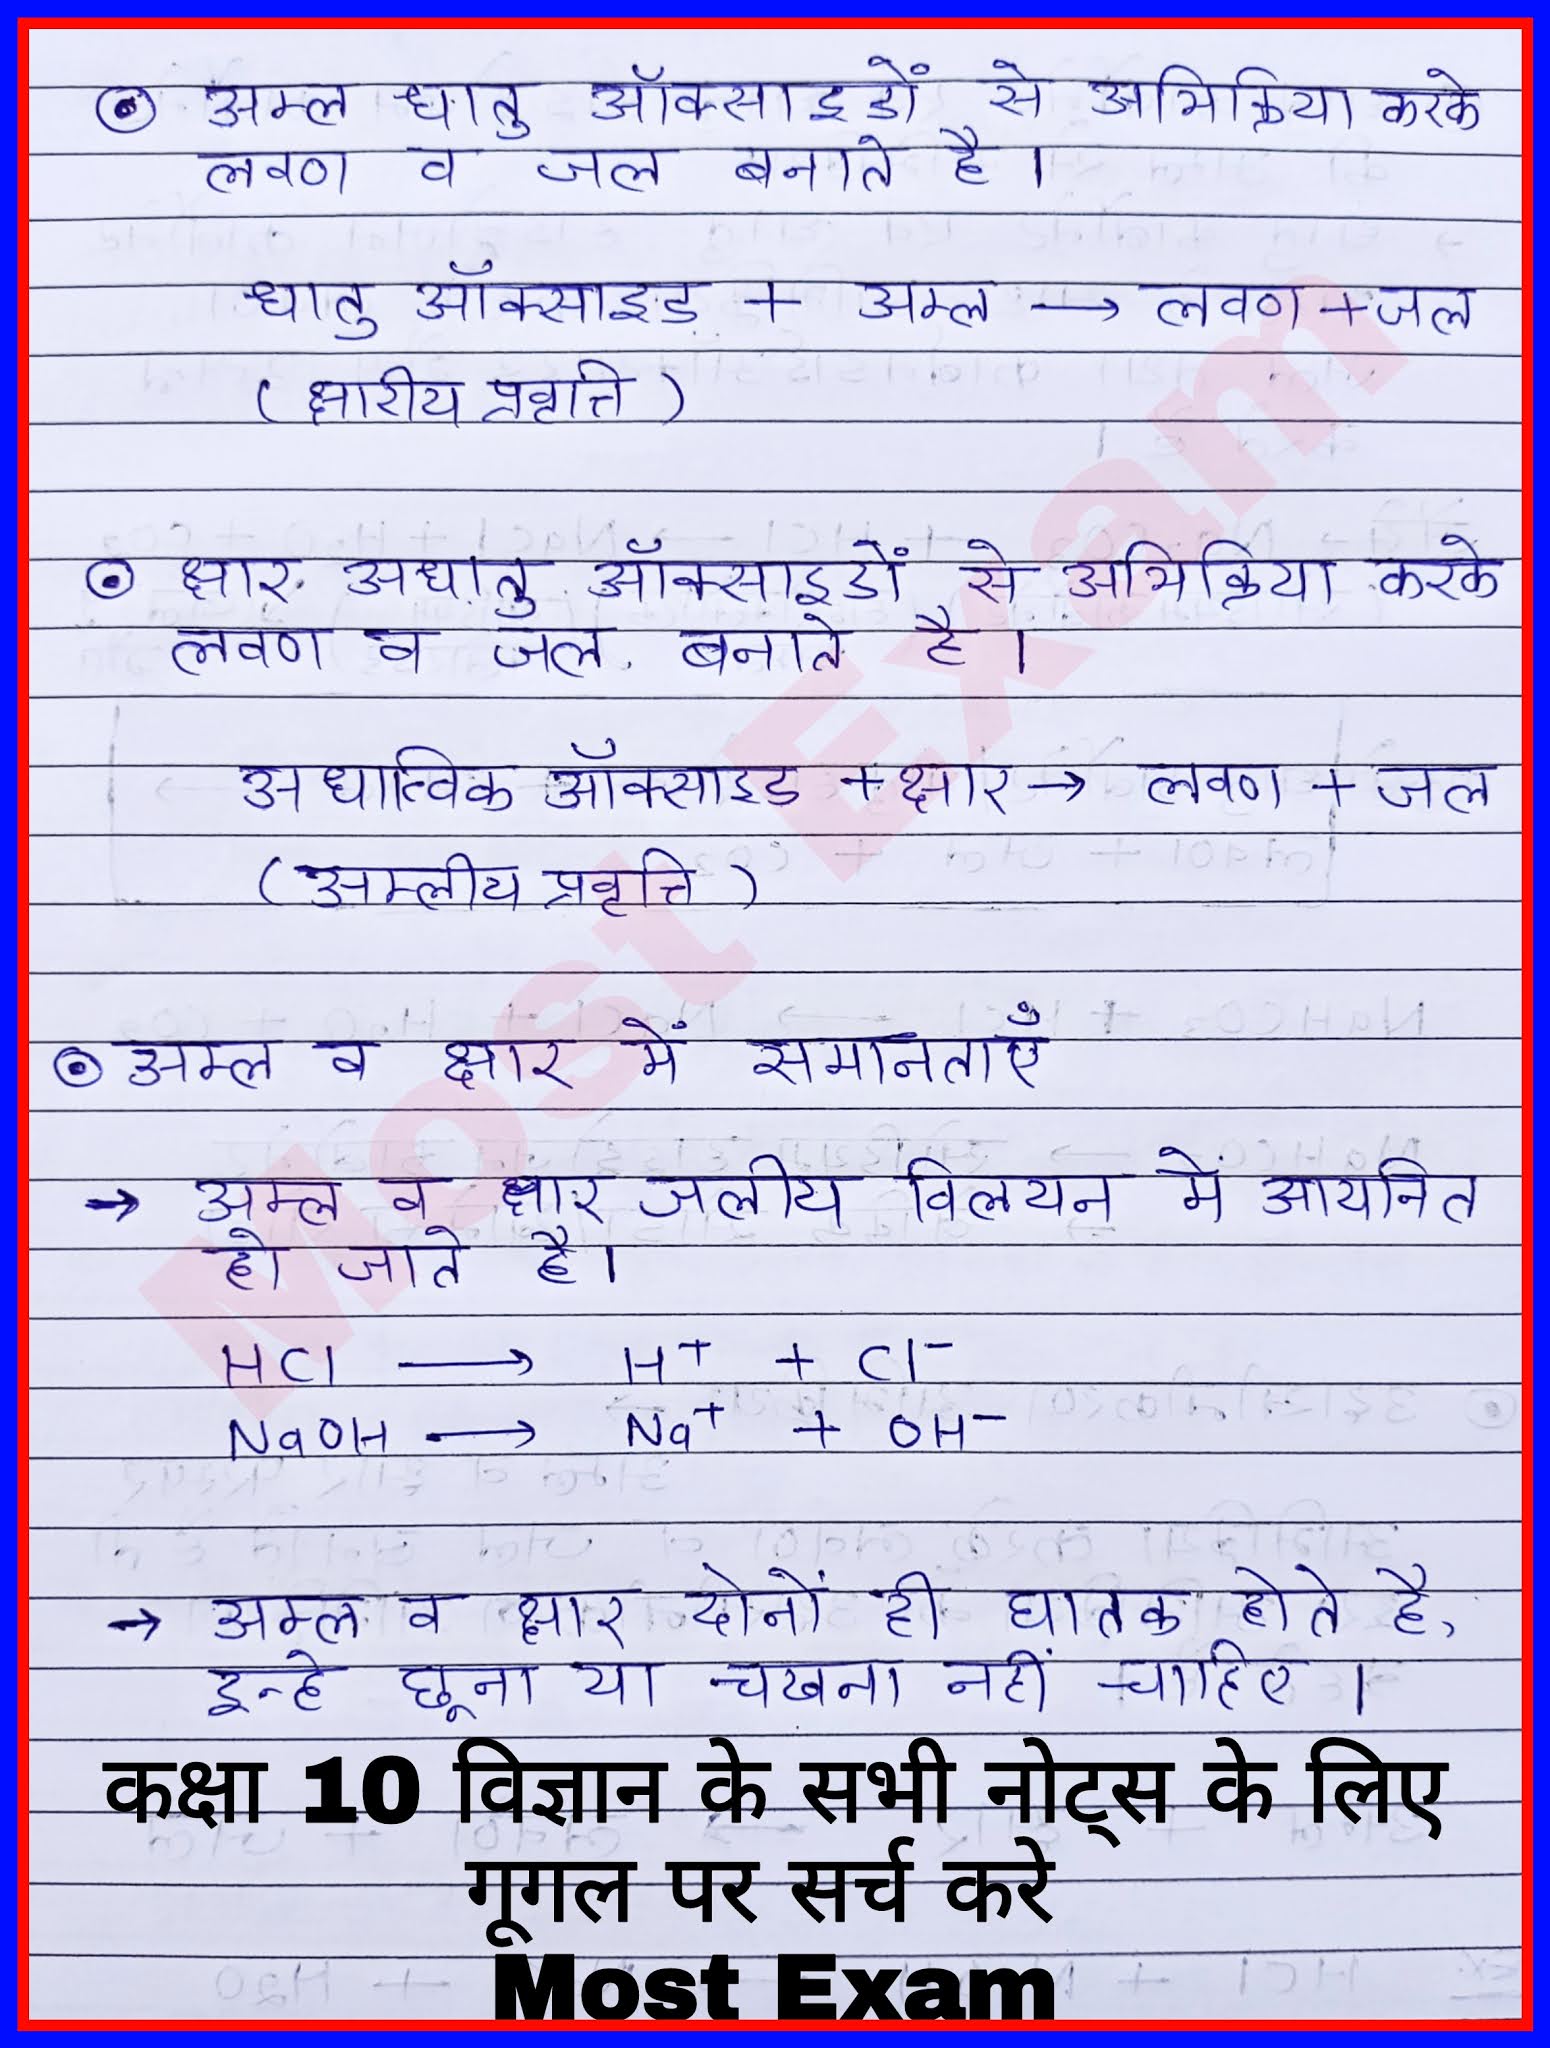 ⊙ अम्ल धातु ऑक्साइडों से अभिक्रिया करके
लवण व जल बनाते है ।
धातु ऑक्साइड + अम्ल → लवण + जल
( क्षारीय प्रवृत्ति )
⊙ क्षार अधातु ऑक्साइडों से अभिक्रिया करके
लवण व जल बनाते है ।
अधात्विक ऑक्साइड + क्षार → लवण + जल
( अम्लीय प्रवृत्ति )
⊙ अम्ल व क्षार में समानताएँ
→ अम्ल व क्षार जलीय विलयन में आयनित
हो जाते है ।
HCl → H⁺ + Cl⁻
NaOH → Na⁺ + OH⁻
→ अम्ल व क्षार दोनों ही घातक होते है,
इन्हे छूना या चखना नहीं चाहिए ।
कक्षा 10 विज्ञान के सभी नोट्स के लिए
गूगल पर सर्च करे
Most Exam
Most Exam